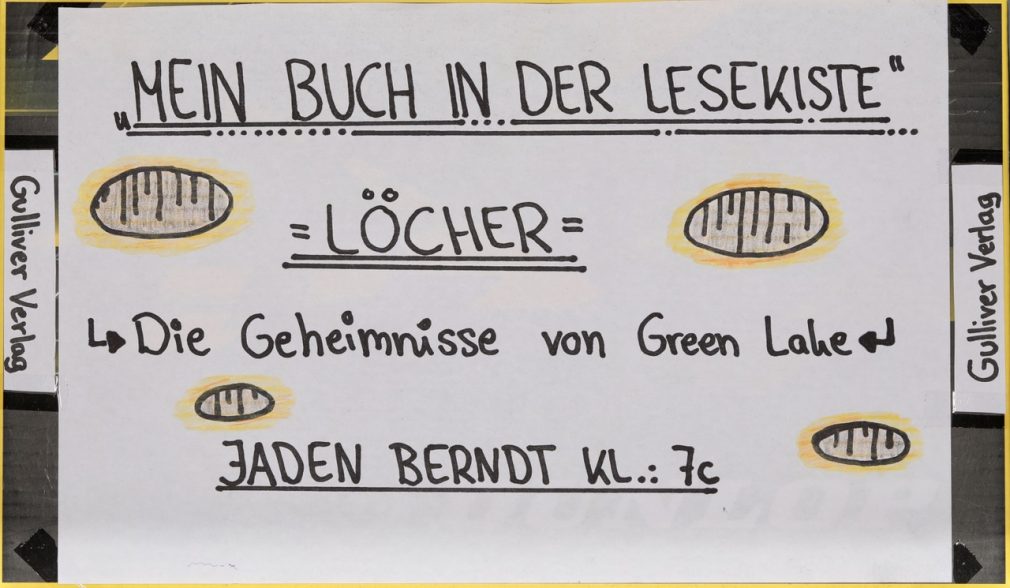 „MEIN BUCH IN DER LESEKISTE“
= LÖCHER =
Die Geheimnisse von Green Lake
JADEN BERNDT KL.: 7c
Gulliver Verlag
Gulliver Verlag